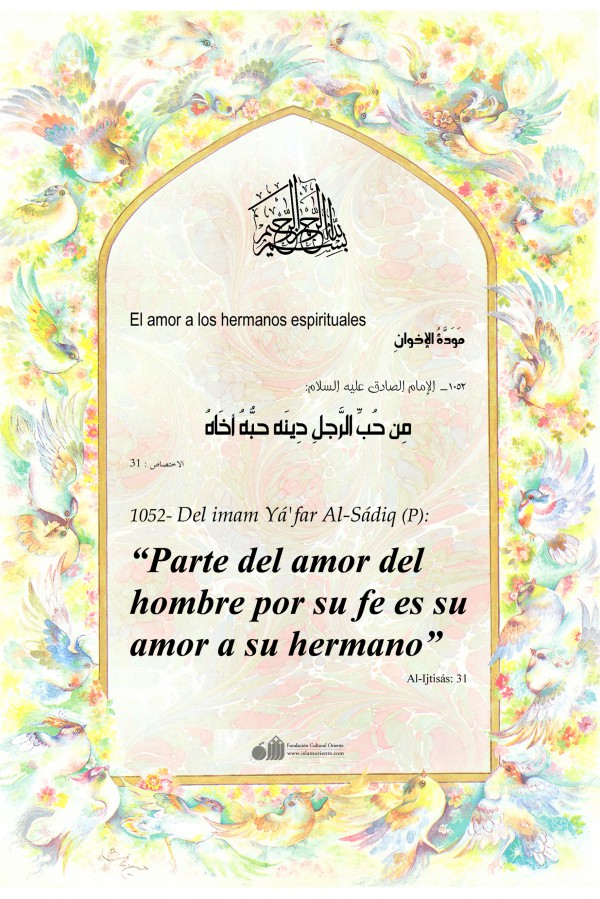 بسم الله الرحمن الرحيم
El amor a los hermanos espirituales
مَوَدَّةُ الإخوانِ
١٠٥٢ـ الإمام الصادق عليه السلام:
مِن حُبِّ الرَّجلِ دِينَه حبُّهُ أخَاهُ
الاختصاص : 31
1052- Del imam Yá'far Al-Sádiq (P):
“Parte del amor del
hombre por su fe es su
amor a su hermano”
Al-Ijtisás: 31
Fundación Cultural Oriente
www.islamoriente.com